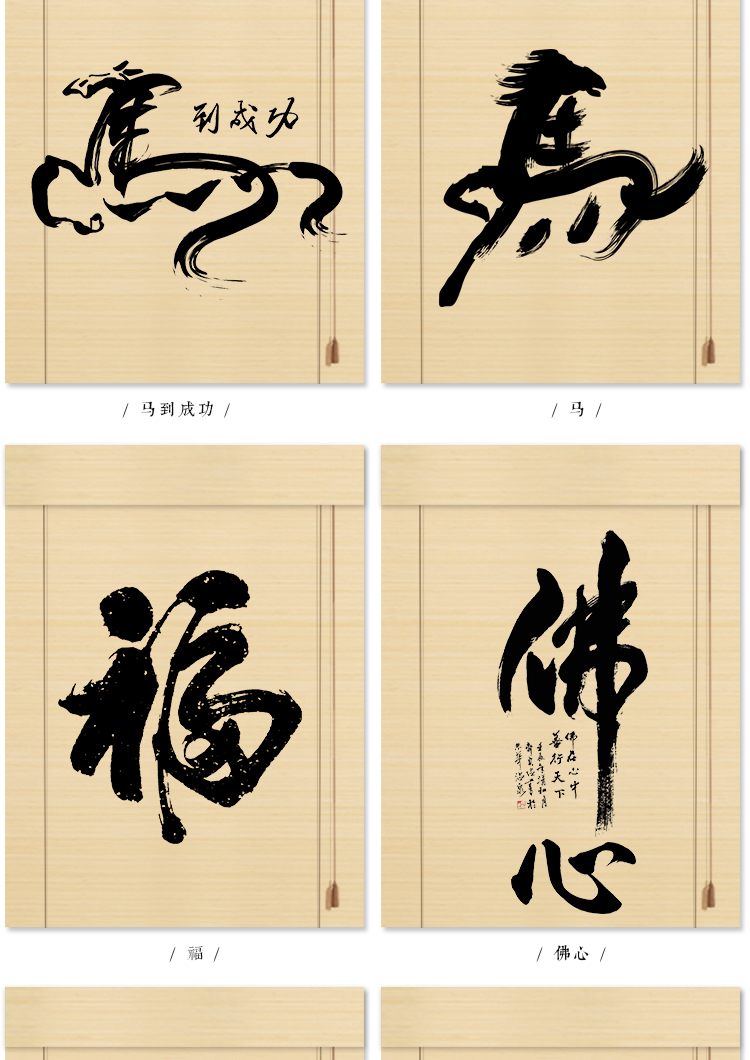 馬
到成功
馬
/ 马到成功 /
/ 马 /
福
佛
佛在心中
善行天下
心
/ 福 /
/ 佛心 /